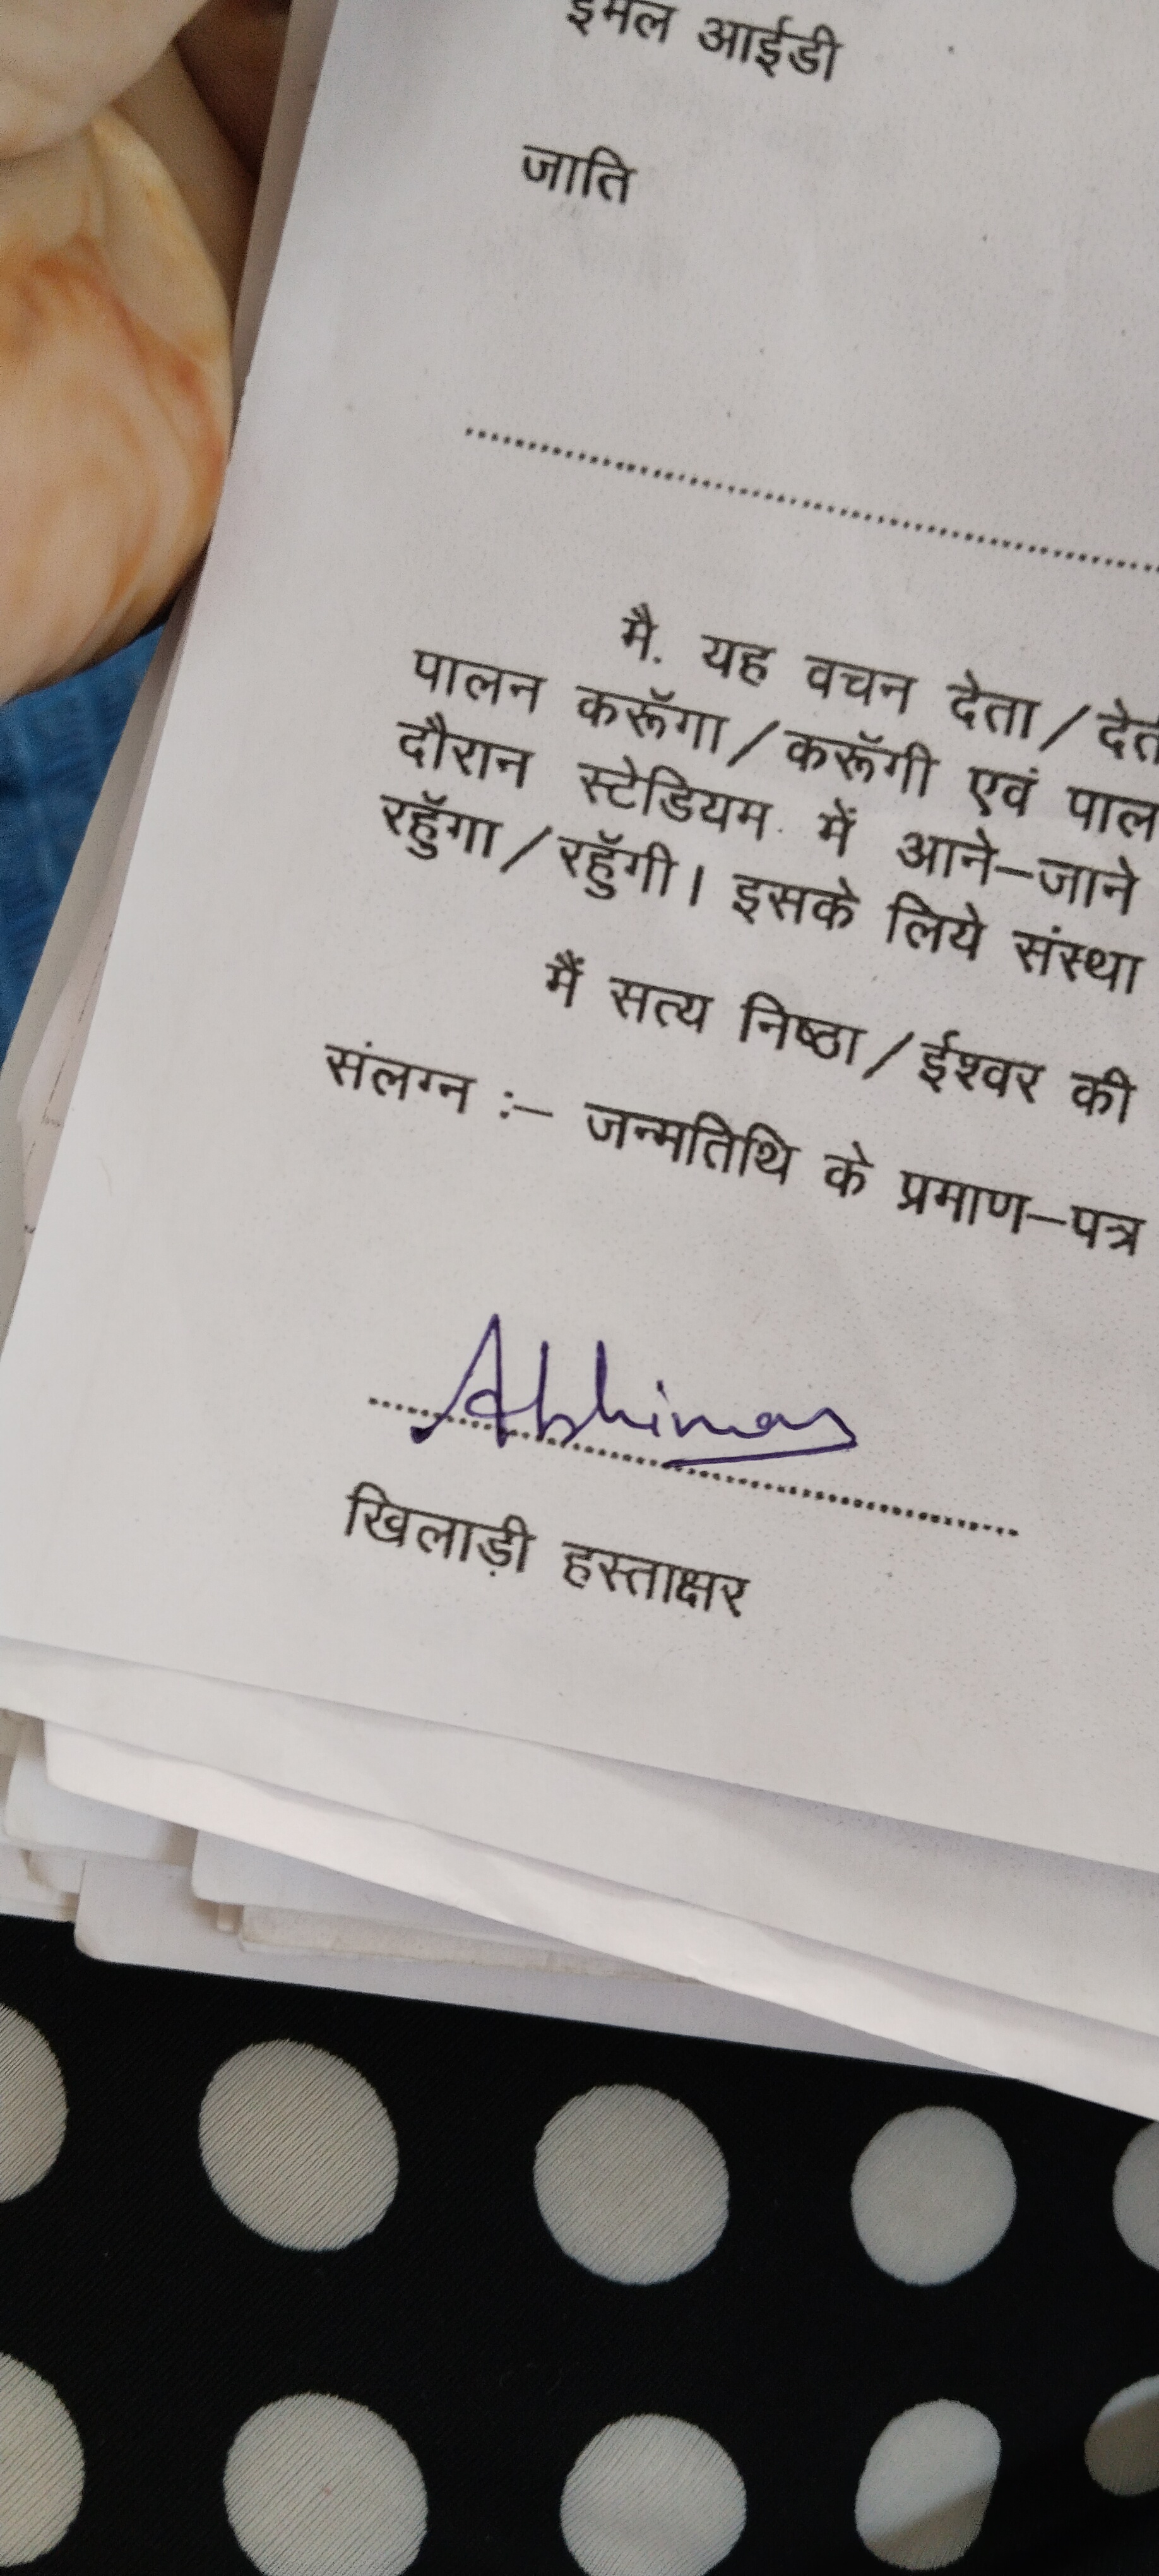 ईमेल आईडी
जाति
................................................
मै. यह वचन देता/
पालन करूॅगा/करूॅगी एवं
दौरान स्टेडियम में आने–जाने
रहुॅगा/रहुॅगी। इसके लिये संस्था
मैं सत्य निष्ठा/ईश्वर की
संलग्न :– जन्मतिथि के प्रमाण–पत्र
Abhinav
खिलाड़ी हस्ताक्षर